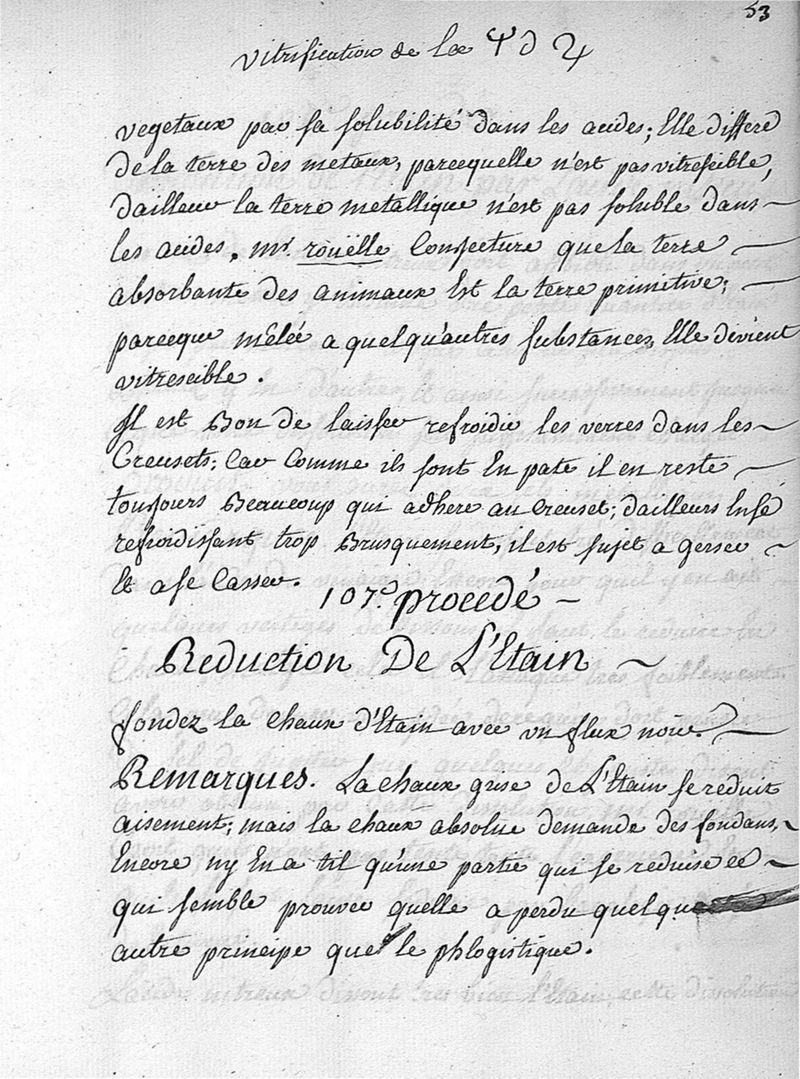 53
Vitrification de la
vegetaux par sa solubilité dans les acides; Elle differe
de la terre des metaux, parcequelle n'est pas vitrescible,
dailleur la terre metallique n'est pas soluble dans
les acides. mr. rouëlle Conjecture que la terre
absorbante des animaux Est la terre primitive;
parceque mêlée a quelqu'autres substances, Elle devient
vitrescible.
Il est Bon de laisser refroidir les verres dans les
Creusets; Car Comme ils sont En pate il en reste
toujours Beaucoup qui adhere au Creuset; dailleurs En se
refroidissant trop Brusquement, il est sujet a gerser
Et a se Casser.
107e. procedé
Reduction De L'Etain
fondez la chaux d'Etain avec un flux noir.
Remarques. La chaux grise de L'Etain se reduit
aisement; mais la chaux absolue demande des fondans,
Encore ny En a til qu'une partie qui se reduise ce
qui semble prouver quelle a perdu quelque
autre principe que le phlogistique.